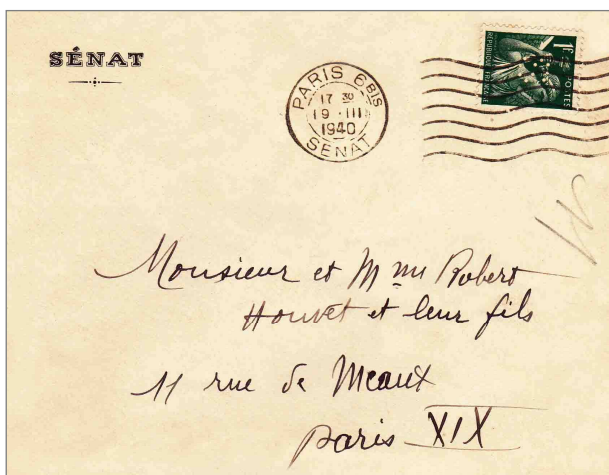 SÉNAT
PARIS 6 BIS
17 30
19 · III
1940
SÉNAT
1F
POSTES
REPUBLIQUE FRANCAISE
Monsieur et Mme Robert
Houvet et leur fils
11 rue de Meaux
Paris XIX